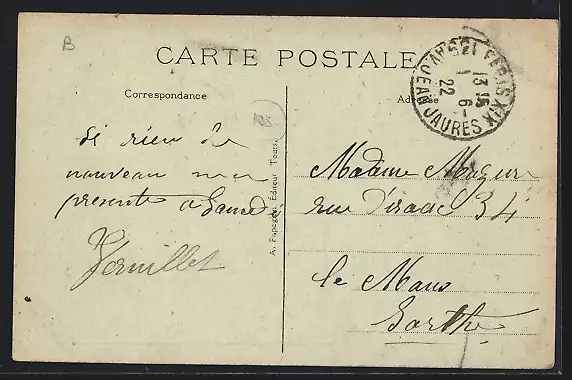 B
CARTE POSTALE
Correspondance
Adresse
125
si rien de
nouveau
presente a Samedi
Vermillet
A. Papeghin Éditeur Tours.
PARIS XIX
13 15
6
22
JEAN JAURES
Madame Mazure
rue 34
le Mans
Sarthe